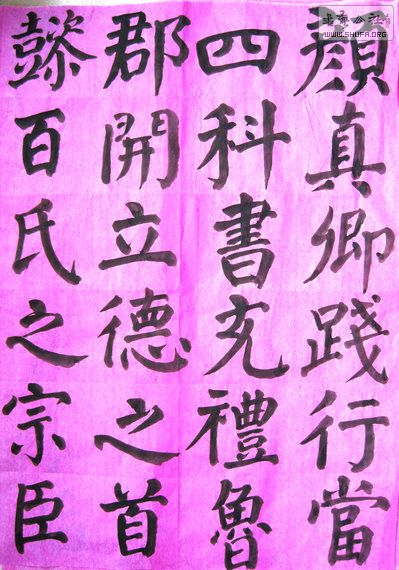 顔真卿踐行當
四科書充禮魯
郡開立德之首
懿百氏之宗臣
WWW.SHUFA.ORG